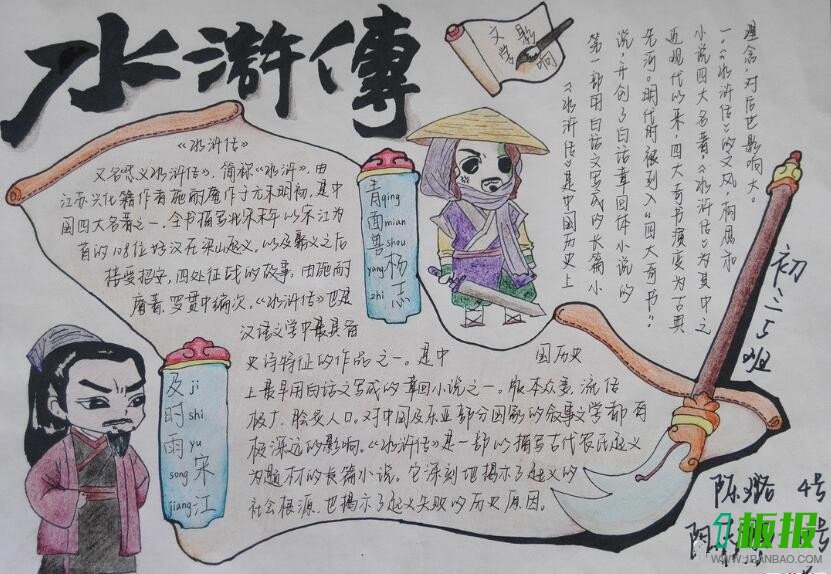 水滸傳
文学
影响
《水浒传》
又名忠义水浒传》，简称《水浒》，由
江苏兴化籍作者施耐庵作于元末明初，是中
国四大名著之一。全书描写北宋末年以宋江为
首的108位好汉在梁山起义，以及聚义之后
接受招安，四处征战的故事。由施耐
庵著，罗贯中编次。《水浒传》也是
汉语文学中最具备
史诗特征的作品之一。是中
国历史
上最早用白话文写成的章回小说之一。版本众多，流传
极广，脍炙人口。对中国及东亚部分国家的叙事文学都有
极深远的影响。《水浒传》是一部以描写古代农民起义
为题材的长篇小说。它深刻地揭示了起义的
社会根源，也揭示了起义失败的历史原因。
青qing
面mian
兽shou
yang杨
zhi志
及ji
时shi
雨yu
song宋
jiang江
《水浒传》是中国历史上
第一部用白话文写成的长篇小
说，开创了白话章回体小说的
先河。明代时被列入“四大奇书”；
近现代以来，四大奇书演变为古典
小说四大名著，《水浒传》为其中之
一。《水浒传》的文风，
理念，对后世影响大。
初二5班
陈
4号
号
板报
WWW.1BANBAO.COM